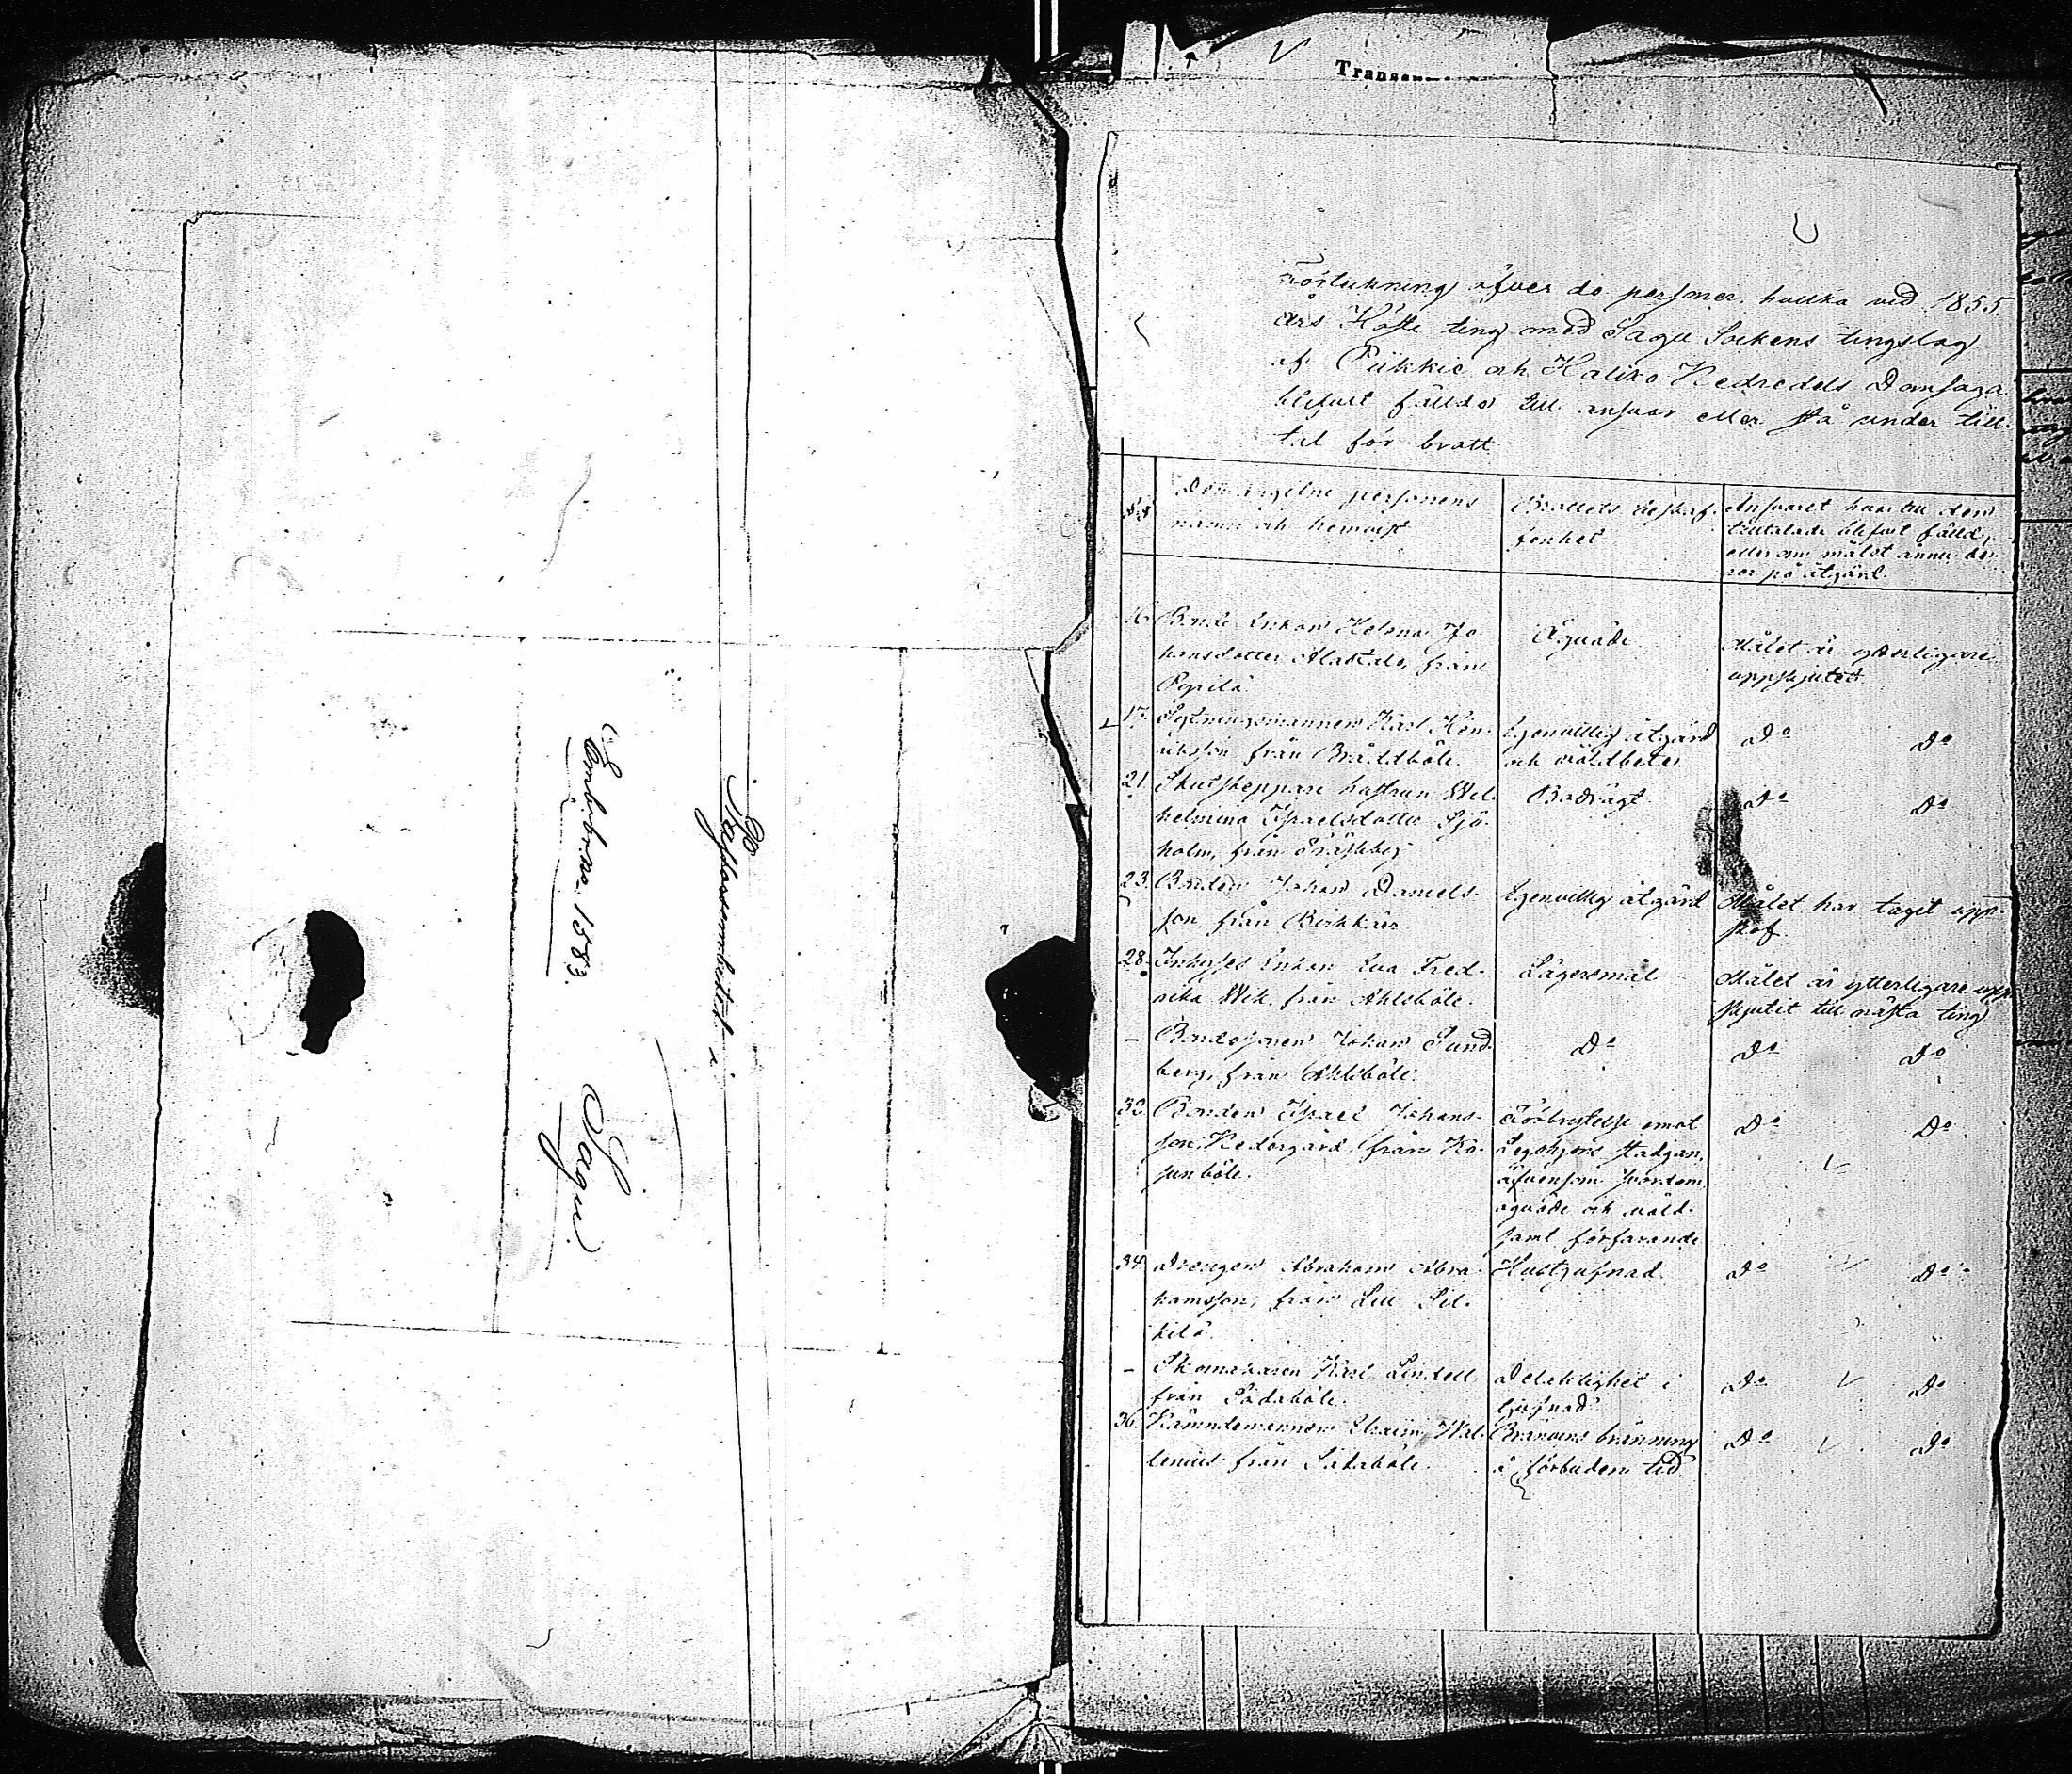 Pastorsembetet i
Sagu
Embetsres. 1883.
Förtekning öfver de personer, hvilka vid 1855
års Höste ting med Sagu Sockens tingslag
af Piikkie och Haliko Nedredels Domsaga
blifvit fällde till ansvar eller stå under till-
tal för brott
Den angifne personens
namn och hemvist
Brottets beskaf-
fenhet
Ansvaret hvar till den
tilltalade blifvit fälld,
eller om målet ännu be-
ror på åtgärd.
16. Bonde Enkan Helena Jo-
hansdotter Alastalo, från
Pyrilä
Åguäde
Målet är ytterligare
uppskjutet
17. Sytningsmannen Karl Hen-
riksson från Bråddböle.
Egenvillig åtgärd
och våldbete.
Do Do
21. Skutskeppare hustrun Wil-
helmina Israelsdotter Sjö-
holm, från Träskböj
Do Do
23. Bonden Johan Daniels-
son från Birkkäis
Egenvillig åtgärd
Målet har tagit upp-
skof
28. Inhyses Enkan Eva Fred-
rika Wik, från Ahlböle.
Lägersmål
Målet är ytterligare upp-
skjutit till nästa ting
– Bondesonen Johan Sund-
berg, från Ahlböle.
Do
Do Do
32. Bonden Israel Johans-
son Nedergård från Ko-
sunböle.
Förbrytelse emot
Legohjons stadgan,
äfvensom svordom
oguäde och våld-
samt förfarande
Do Do
34. Drengen Abraham Abra-
hamsson, från Lill Pil-
kilä
Hästjufnad
Do Do
– Skomakaren Karl Lindell
från Sådaböle.
Delaktighet i
tjufnad
Do Do
36. Nämndemannen Efraim Wal-
lenius från Sådaböle.
Bränvins bränning
å förbuden tid
Do Do